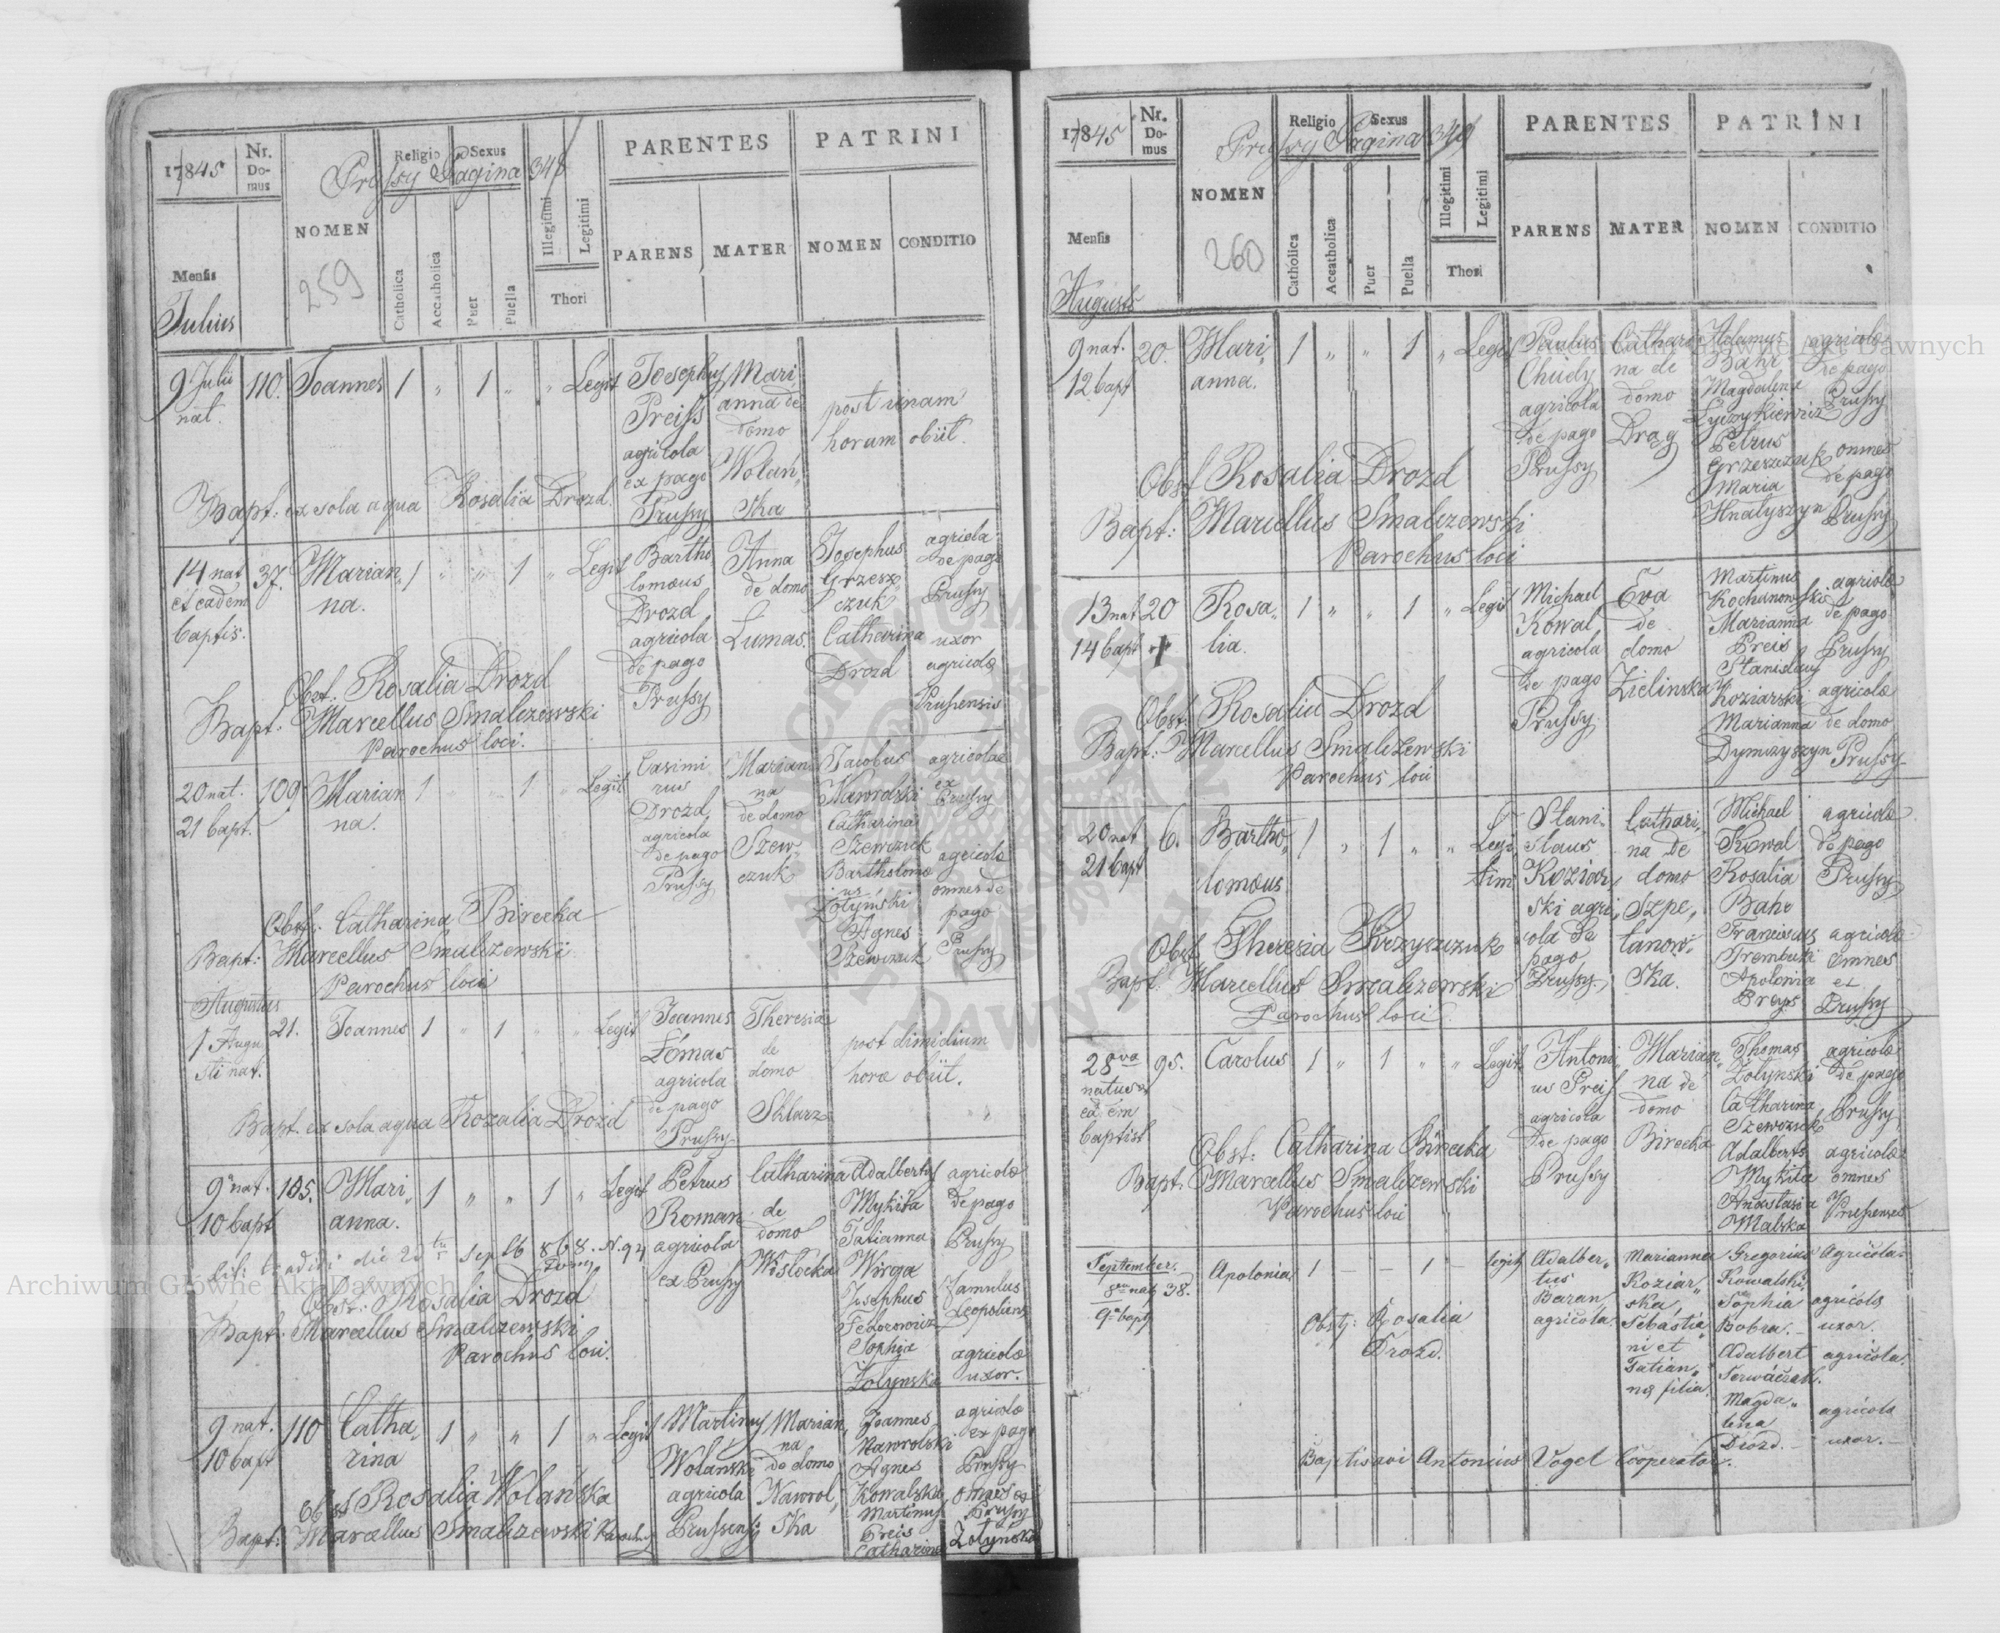 Archiwum Główne Akt Dawnych
17845
Nr. Domus
Prussy Pagina
NOMEN
259
Religio
Sexus
Catholica
Accatholica
Puer
Puella
Illegitimi
Legitimi
Thori
PARENTES
PATRINI
PARENS
MATER
NOMEN
CONDITIO
Mensis
Julius
9 Julii nat.
110.
Joannes
1 " 1 " "
Legit
Josephus Preiss agricola ex pago Prussy
Marianna de domo Wolańska
post unam horam obiit.
Bapt: ex sola aqua Rosalia Drozd.
14 nat et eadem baptis.
37.
Marianna.
1 " " 1 "
Legit
Bartholomæus Drozd agricola de pago Prussy
Anna de domo Lumas.
Josephus Grzeszczuk
agricola de pago Prussy
Catharina Drozd
uxor agricolæ Prussensis
Obst. Rosalia Drozd
Bapt: Marcellus Smalczewski
Parochus loci.
20 nat. 21 bapt.
109
Marianna.
1 " " 1 "
Legit
Casimirus Drozd, agricola de pago Prussy
Marianna de domo Szewczuk
Jacobus Nawrolski
Catharina Szewczuk
Bartholomæus Żołyński
Agnes Szewczuk
agricolae ex Prussy
agricolæ omnes de pago Prussy
Obst: Catharina Birecka
Bapt: Marcellus Smalczewski
Parochus loci
Augustus
1 Augusti nat.
21.
Joannes
1 " 1 " "
Legit
Joannes agricola de pago Prussy
Theresia de domo Sklarz
post dimidium horæ obiit.
Bapt. ex sola aqua Rozalia Drozd
9 nat. 10 bapt
105.
Marianna.
1 " " 1 "
Legit
Petrus Roman agricola ex Prussy
Catharina de domo Wisłocka
Adalbertus Mykita
Tatianna Wirga
Josephus Fedorowicz
Sophia Żołynski
agricolæ de pago Prussy
famulus Leopoliens
agricolæ uxor.
die Sept 868. N. 94
Obst: Rosalia Drozd
Bapt. Marcellus Smalczewski
Parochus loci.
9 nat. 10 bapt
110
Catharina
1 " " 1 "
Legit
Martinus Wolański agricola Prussensis
Marianna de domo Nawrolska
Joannes Nawrolski
Agnes Kowalska
Martinus Preis
Catharina Żołyńska
agricolæ ex pago Prussy
omnes ex Prussy
Obst Rosalia Wolańska
Bapt: Marcellus Smalczewski Parochus
17845
Nr. Domus
Prussy Pagina
NOMEN
260
Religio
Sexus
Catholica
Accatholica
Puer
Puella
Illegitimi
Legitimi
Thori
PARENTES
PATRINI
PARENS
MATER
NOMEN
CONDITIO
Mensis
Augusts
9 nat. 12 bapt
20.
Marianna.
1 " " 1 "
Legit
Paulus Chudy agricola de pago Prussy
Catharina de domo Drąg
Adamus Bahr
Magdalena Łyczykiewicz
Petrus Grzeszczuk
Maria Hnatyszyn
agricolæ de pago Prussy
omnes de pago Prussy
Obst Rosalia Drozd
Bapt: Marcellus Smalczewski
Parochus loci
13 nat 14 bapt
20
Rosalia.
1 " " 1 "
Legit
Michael Kowal agricola de pago Prussy
Eva de domo Zielinska
Martinus Kochanowski
Marianna Preis
Stanislaus Koziarski
Marianna Dymczyszyn
agricolæ de pago Prussy
agricolæ de domo Prussy
Obst. Rosalia Drozd
Bapt: Marcellus Smalczewski
Parochus loci
20 nat 21 bapt
6.
Bartholomæus
1 " 1 " "
Legitim
Stanislaus Koziarski agricola de pago Prussy
Catharina de domo Szpetanowska.
Michael Kowal
Rosalia Bahr
Franciscus Trembicki
Apolonia Preys
agricolæ de pago Prussy
agricolæ omnes ex Prussy
Obst Theresia Krzyszczuk
Bapt. Marcellus Smalczewski
Parochus loci
28va natus eadem baptist
95.
Carolus
1 " 1 " "
Legit
Antonius Preis agricola de pago Prussy
Marianna de domo Birecka
Thomas Żolynski
Catharina Szewczuk
Adalberts Mykita
Anastasia Malska
agricolæ de pago Prussy
agricolæ omnes Prussenses
Obst: Catharina Birecka
Bapt. Marcellus Smalczewski
Parochus loci
September.
8va nat 9a bapt
38.
Apolonia
1 – – 1 –
legit
Adalbertus Baran agricola.
Marianna Koziarska, Sebastiani et Tatianna filia.
Gregorius Kowalski,
Sophia Bobra. –
Adalbert Serwaczak.
Magdalena Drozd. –
Agricola.
agricolæ uxor.
agricola.
agricola uxor. –
Obstj: Rosalia Drozd.
Baptisavi Antonius Vogel Cooperator.
Archiwum Główne Akt Dawnych